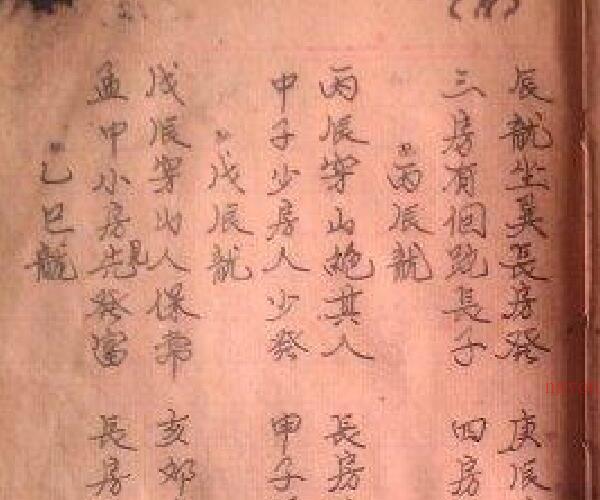 辰龍坐巽長房發 庚辰
三房有個跑長子 四房
丙辰龍
丙辰穿山抛其人 長房
甲子少房人少發 甲子
戊辰龍
戊辰穿山人保常 亥卯
孟中小房先見發富 長房
乙巳龍